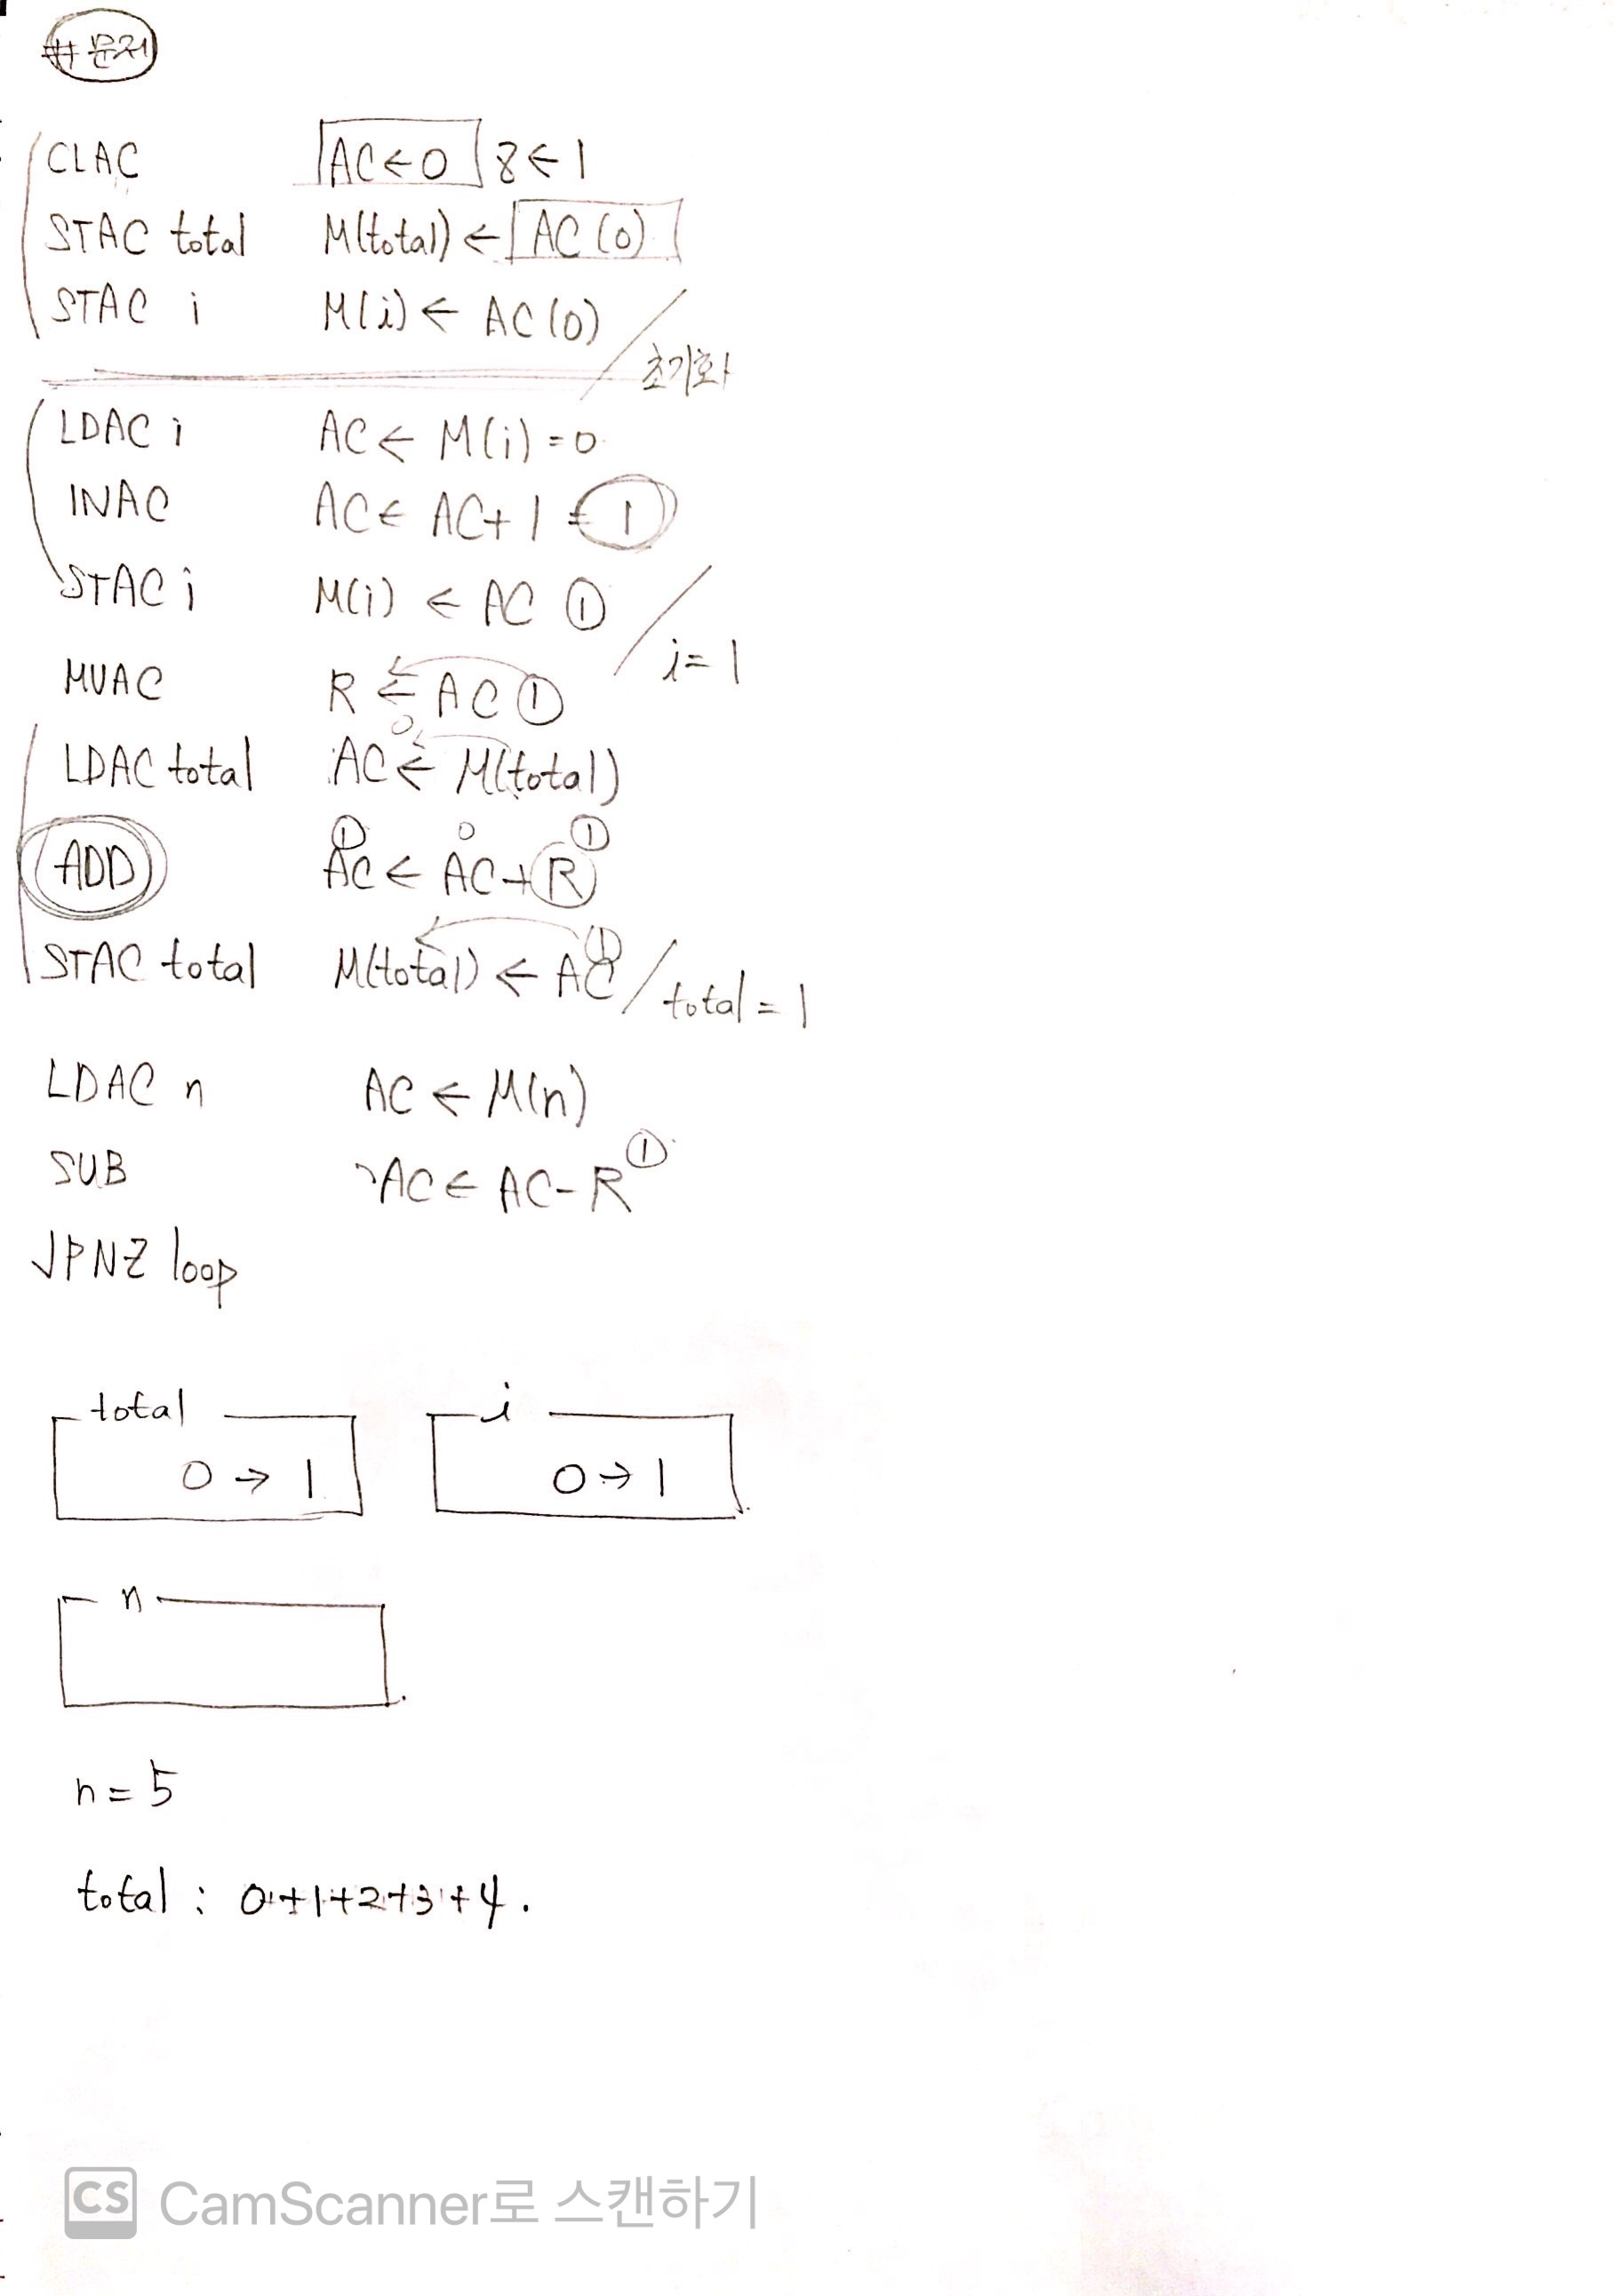 # 문제
CLAC AC ← 0 z ← 1
STAC total M(total) ← AC (0)
STAC i M(i) ← AC (0)
초기화
LDAC i AC ← M(i) = 0
INAC AC ← AC + 1 = 1
STAC i M(i) ← AC ①
i = 1
MVAC R ← AC ①
0
LDAC total AC ← M(total)
① 0 ①
ADD AC ← AC + R
①
STAC total M(total) ← AC
total = 1
LDAC n AC ← M(n)
①
SUB AC ← AC - R
JPNZ loop
total i
0 → 1 0 → 1
n
n = 5
total : 0+1+2+3+4.
CS CamScanner로 스캔하기